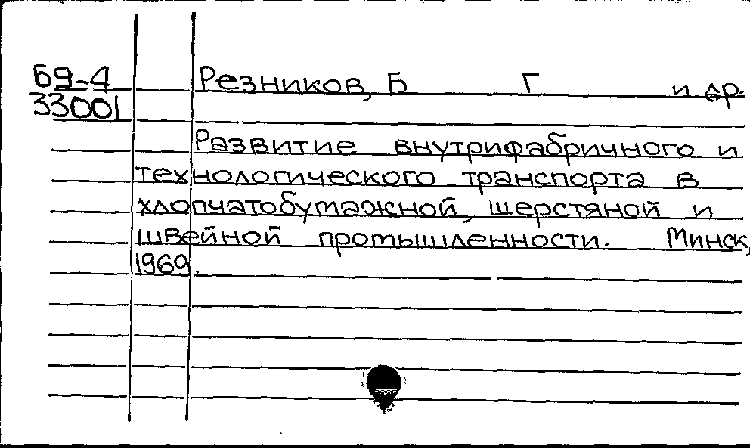 69-4 Резников, Б Г и др
33001
Развитие внутрифабричного и
технологического транспорта в
хлопчатобумажной, шерстяной и
швейной промышленности. Минск,
1969.